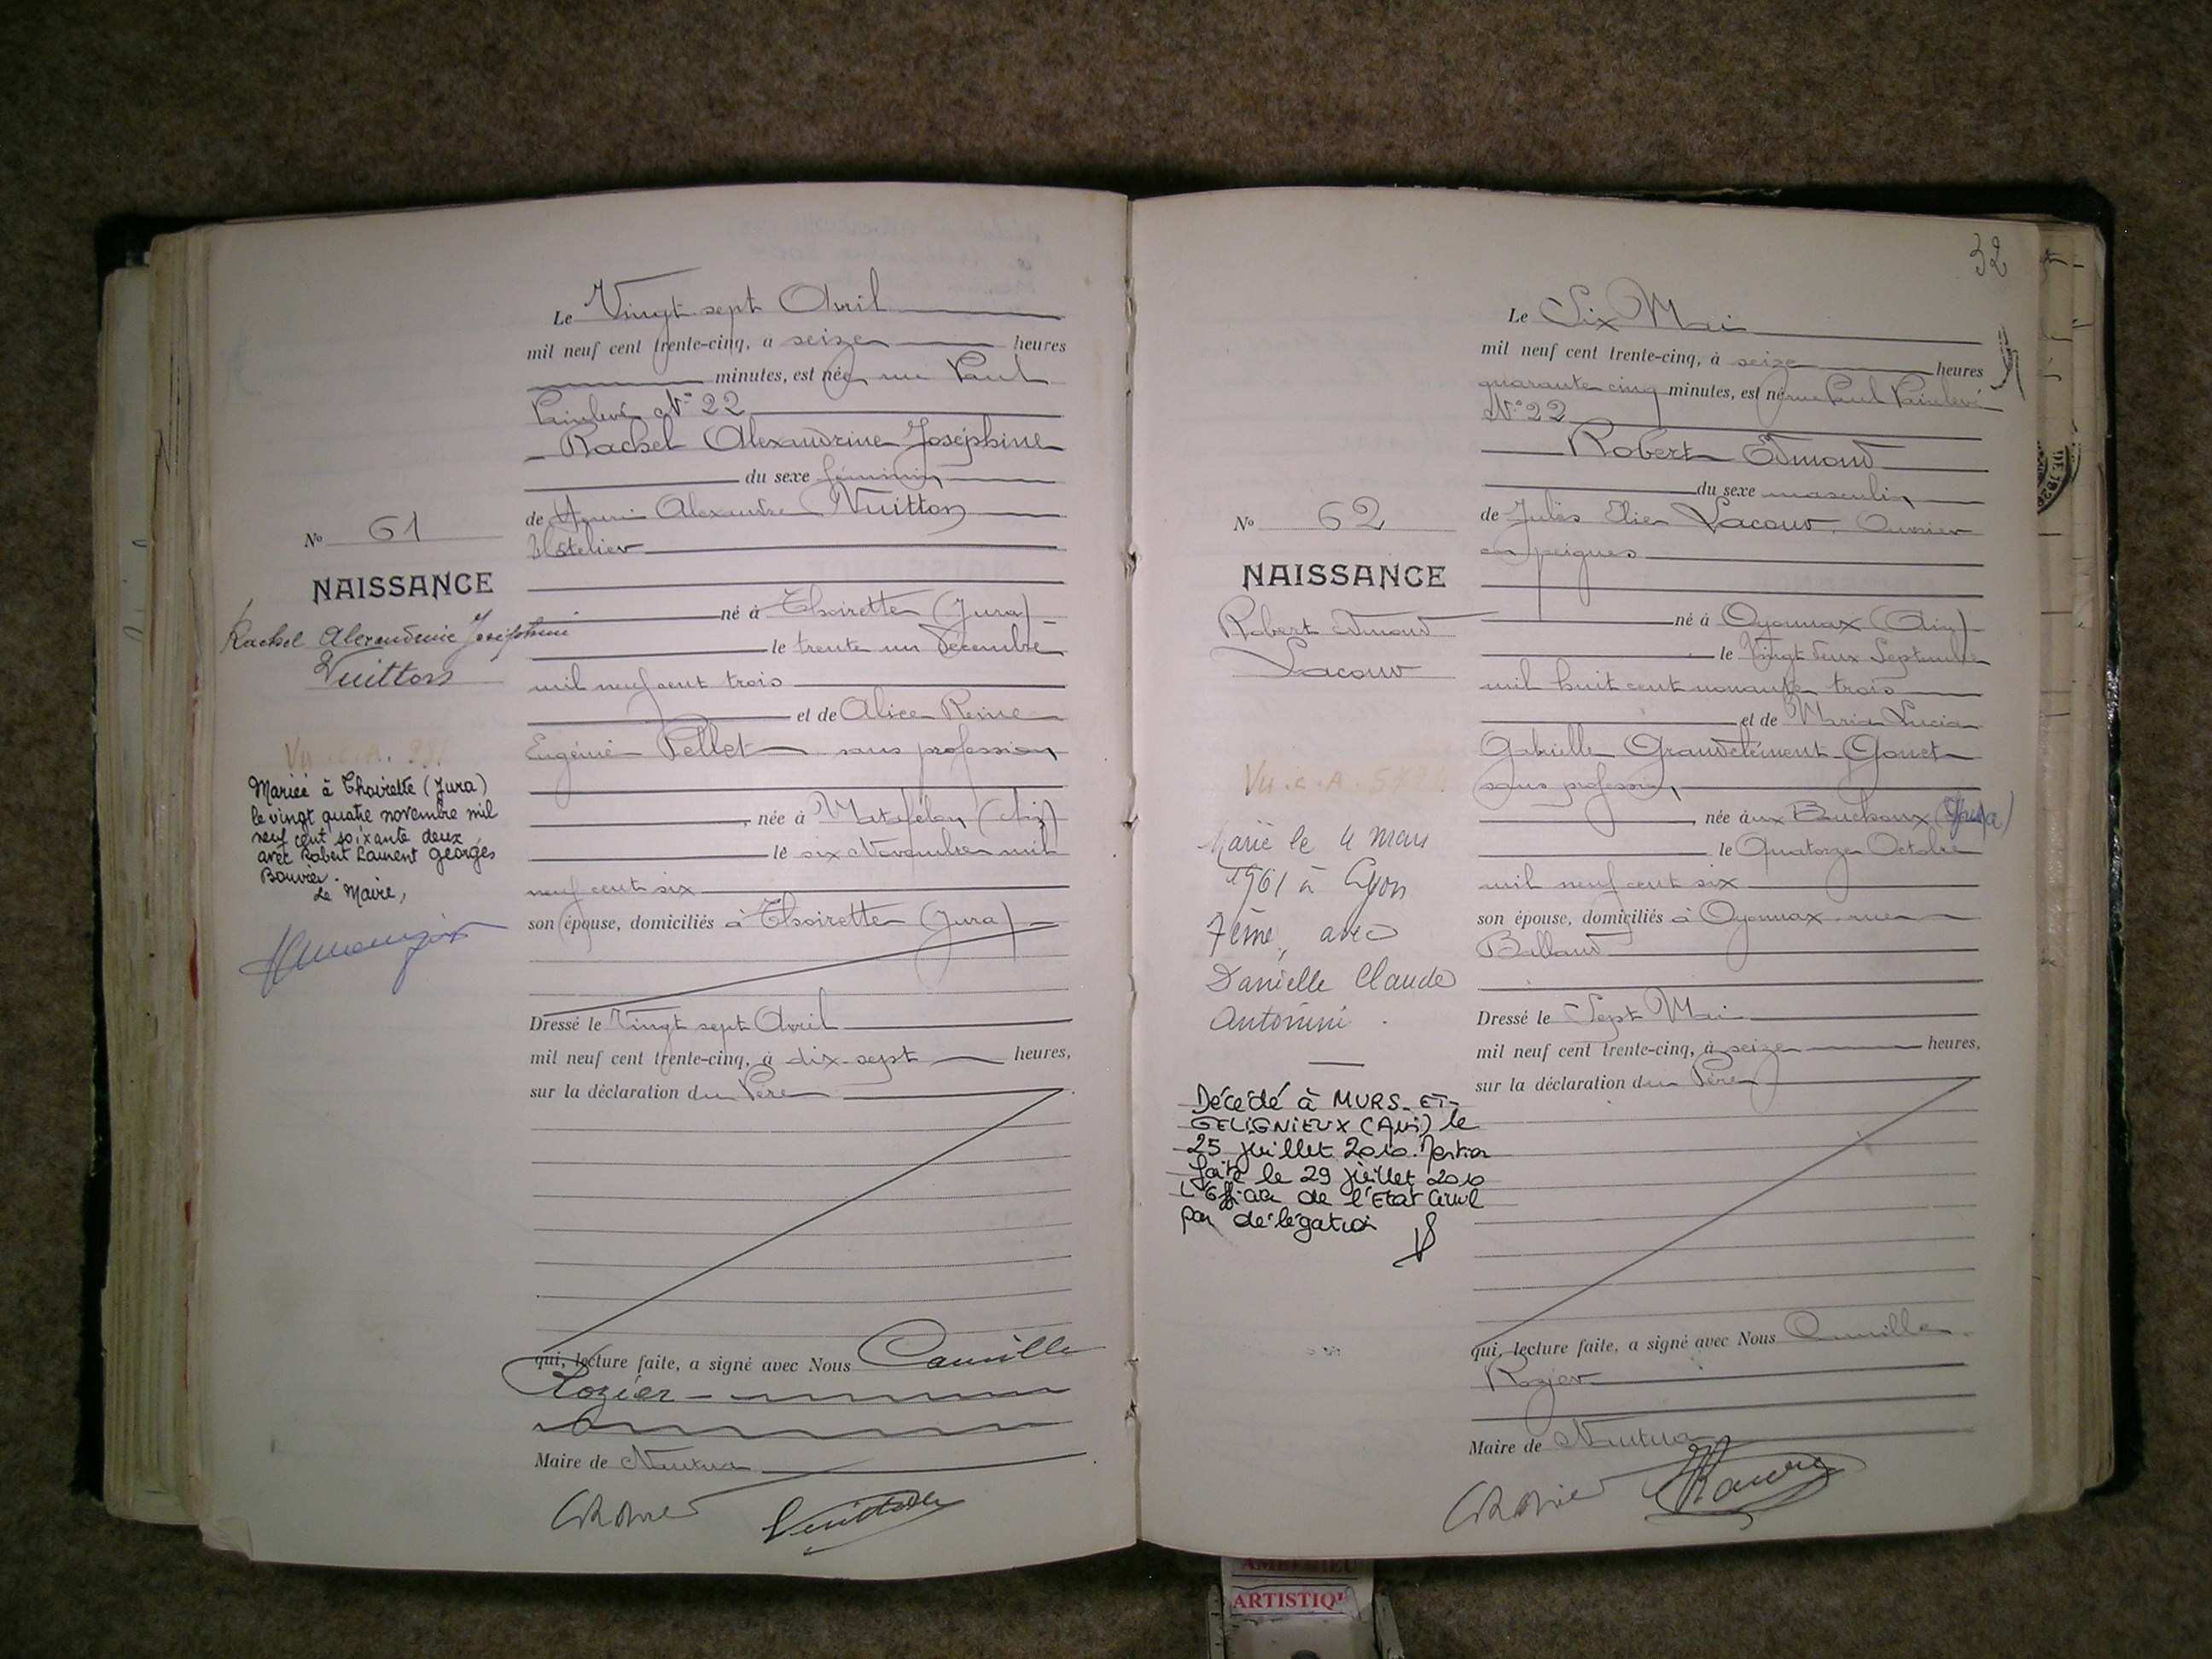 Le Vingt-sept Avril
mil neuf cent trente-cinq, à seize heures
minutes, est née, rue Paul
Painlevé N° 22
Rachel Alexandrine Joséphine
du sexe féminin
de Henri Alexandre Vuitton
Hôtelier
né à Thoirette (Jura)
le trente un Décembre
mil neuf cent trois
et de Alice Reine
Eugénie Pellet sans profession
, née à Matafelon (Ain)
le six Novembre mil
neuf cent six
son épouse, domiciliés à Thoirette (Jura)
Dressé le Vingt sept Avril
mil neuf cent trente-cinq, à dix-sept heures,
sur la déclaration du Père
qui, lecture faite, a signé avec Nous Camille
Rozier
Maire de Nantua
Vuitton
N° 61
NAISSANCE
Rachel Alexandrine Joséphine
Vuitton
Vu. C. A.
Mariée à Thoirette (Jura)
le vingt quatre novembre mil
neuf cent soixante deux
avec Robert Laurent Georges
Le Maire,
32
Le Six Mai
mil neuf cent trente-cinq, à seize heures
quarante cinq minutes, est né, rue Paul Painlevé
N° 22
Robert Edmond
du sexe masculin
de Jules Elie Lacour, Ouvrier
en peignes
né à Oyonnax (Ain)
le Vingt deux Septembre
mil huit cent nonante trois
et de Maria Lucia
Gabrielle Grandclément Gonet
sans profession
, née aux Bouchoux (Jura)
le Quatorze Octobre
mil neuf cent six
son épouse, domiciliés à Oyonnax rue
Dressé le Sept Mai
mil neuf cent trente-cinq, à seize heures,
sur la déclaration du Père
qui, lecture faite, a signé avec Nous Camille
Rozier
Maire de Nantua
N° 62
NAISSANCE
Robert Edmond
Lacour
Vu. C. A.
Marié le 4 mars
1961 à Lyon
7ème, avec
Danielle Claude
Antonini.
Décédé à MURS-ET-
GELIGNIEUX (Ain) le
25 juillet 2010. Mention
faite le 29 juillet 2010
L'Officier de l'Etat Civil
par délégation
ARTISTIQ